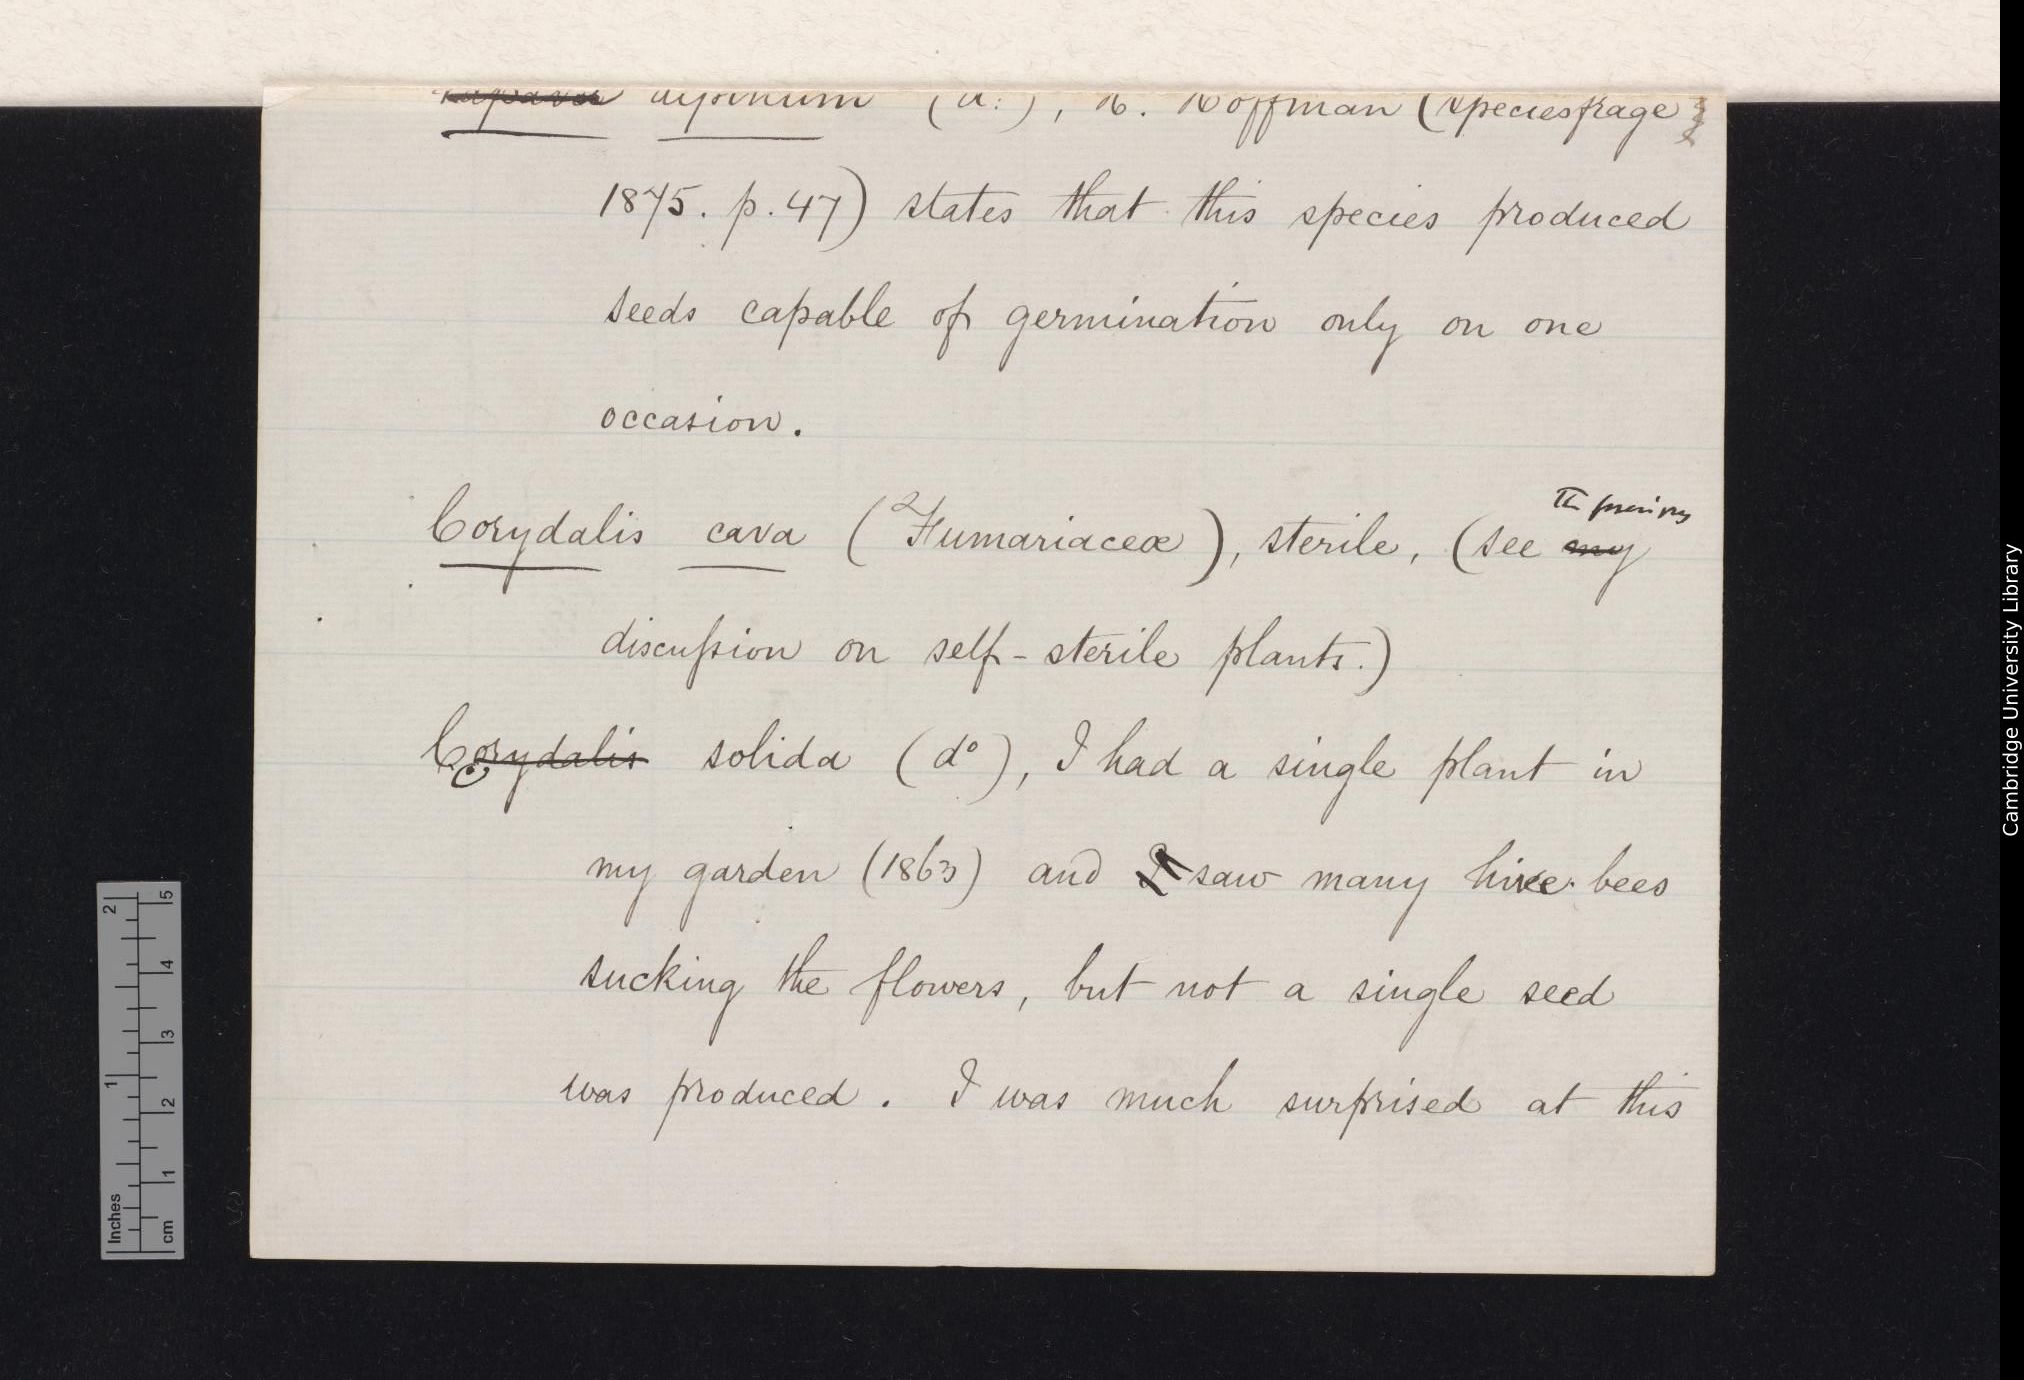 Papaver alpinum (do), H. Hoffman (Speciesfrage
1875. p. 47) states that this species produced
seeds capable of germination only on one
occasion.
The previous
Corydalis cava (Fumariaceæ), sterile, (see my
discussion on self-sterile plants.)
Corydalis solida (do), I had a single plant in
my garden (1863) and I saw many hive bees
sucking the flowers, but not a single seed
was produced. I was much surprised at this
Cambridge University Library
Inches
1
2
cm
1
2
3
4
5